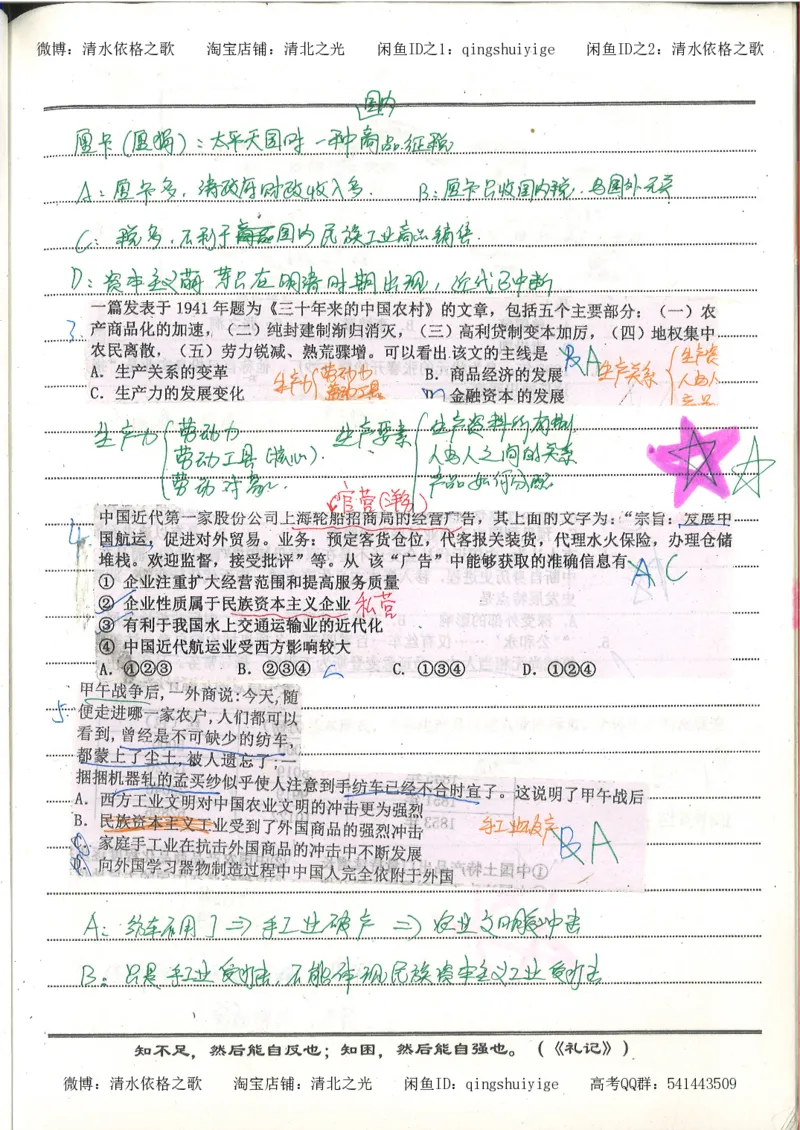 微博：清水依格之歌　淘宝店铺：清北之光　闲鱼ID之1：qingshuiyige　闲鱼ID之2：清水依格之歌
国内
厘卡（厘捐）：太平天国时 一种商品征税
A：厘卡多，清政府财政收入多．　B：厘卡只收国内税，与国外无关
C：税多，不利于国内民族工业商品销售．
D：资本主义萌芽只在明清时期出现，近代已中断
3.
一篇发表于 1941 年题为《三十年来的中国农村》的文章，包括五个主要部分：（一）农
产商品化的加速，（二）纯封建制渐归消灭，（三）高利贷制变本加厉，（四）地权集中
农民离散，（五）劳力锐减、熟荒骤增。可以看出该文的主线是 B A
A. 生产关系的变革　B. 商品经济的发展
C. 生产力的发展变化　D. 金融资本的发展
生产力 劳动力 劳动工具
生产关系 生产资 人与人 产品
生产力 劳动力 劳动工具（核心）． 劳动对象．
生产要素 生产资料所有制 人与人之间的关系 产品如何分配
官营（洋务）
4.
中国近代第一家股份公司上海轮船招商局的经营广告，其上面的文字为：“宗旨：发展中
国航运，促进对外贸易。业务：预定客货仓位，代客报关装货，代理水火保险，办理仓储
堆栈。欢迎监督，接受批评”等。从 该“广告”中能够获取的准确信息有 A C
① 企业注重扩大经营范围和提高服务质量
② 企业性质属于民族资本主义企业 私营
③ 有利于我国水上交通运输业的近代化
④ 中国近代航运业受西方影响较大
A. ①②③　B. ②③④　C. ①③④　D. ①②④
5.
甲午战争后，一外商说：今天，随
便走进哪一家农户，人们都可以
看到，曾经是不可缺少的纺车，
都蒙上了尘土，被人遗忘了；一
捆捆机器轧的孟买纱似乎使人注意到手纺车已经不合时宜了。这说明了甲午战后
A. 西方工业文明对中国农业文明的冲击更为强烈
B. 民族资本主义工业受到了外国商品的强烈冲击
C. 家庭手工业在抗击外国商品的冲击中不断发展
D. 向外国学习器物制造过程中中国人完全依附于外国
手工业破产 B A
A：纺车不用了 ⇒ 手工业破产 ⇒ 农业文明受冲击
B：只是手工业受打击，不能体现民族资本主义工业受打击
知不足，然后能自反也；知困，然后能自强也。（《礼记》）
微博：清水依格之歌　淘宝店铺：清北之光　闲鱼ID：qingshuiyige　高考QQ群：541443509